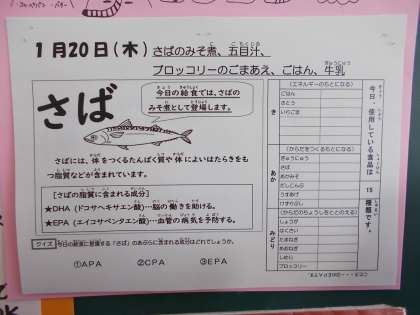 1月20日(木) さばのみそ煮、五目汁、
ブロッコリーのごまあえ、ごはん、牛乳
さば
今日の給食では、さばの
みそ煮として登場します。
さばには、体をつくるたんぱく質や体によいはたらきをも
つ脂質などが含まれています。
[さばの脂質に含まれる成分]
★DHA(ドコサヘキサエン酸)…脳の働きを助ける。
★EPA(エイコサペンタエン酸)…血管の病気を予防する。
クイズ 今日の給食に登場する「さば」のあぶらに含まれる成分はどれでしょうか。
①APA ②CPA ③EPA
(エネルギーのもとになる)
き
ごはん
さとう
(からだをつくるもとになる)
あか
ぎゅうにゅう
さば
あかみそ
うすあげ
(からだのちょうしをととのえる)
みどり
しょうが
はくさい
たまねぎ
しめじ
ブロッコリー
今日、使用している食品は
15
種類です。